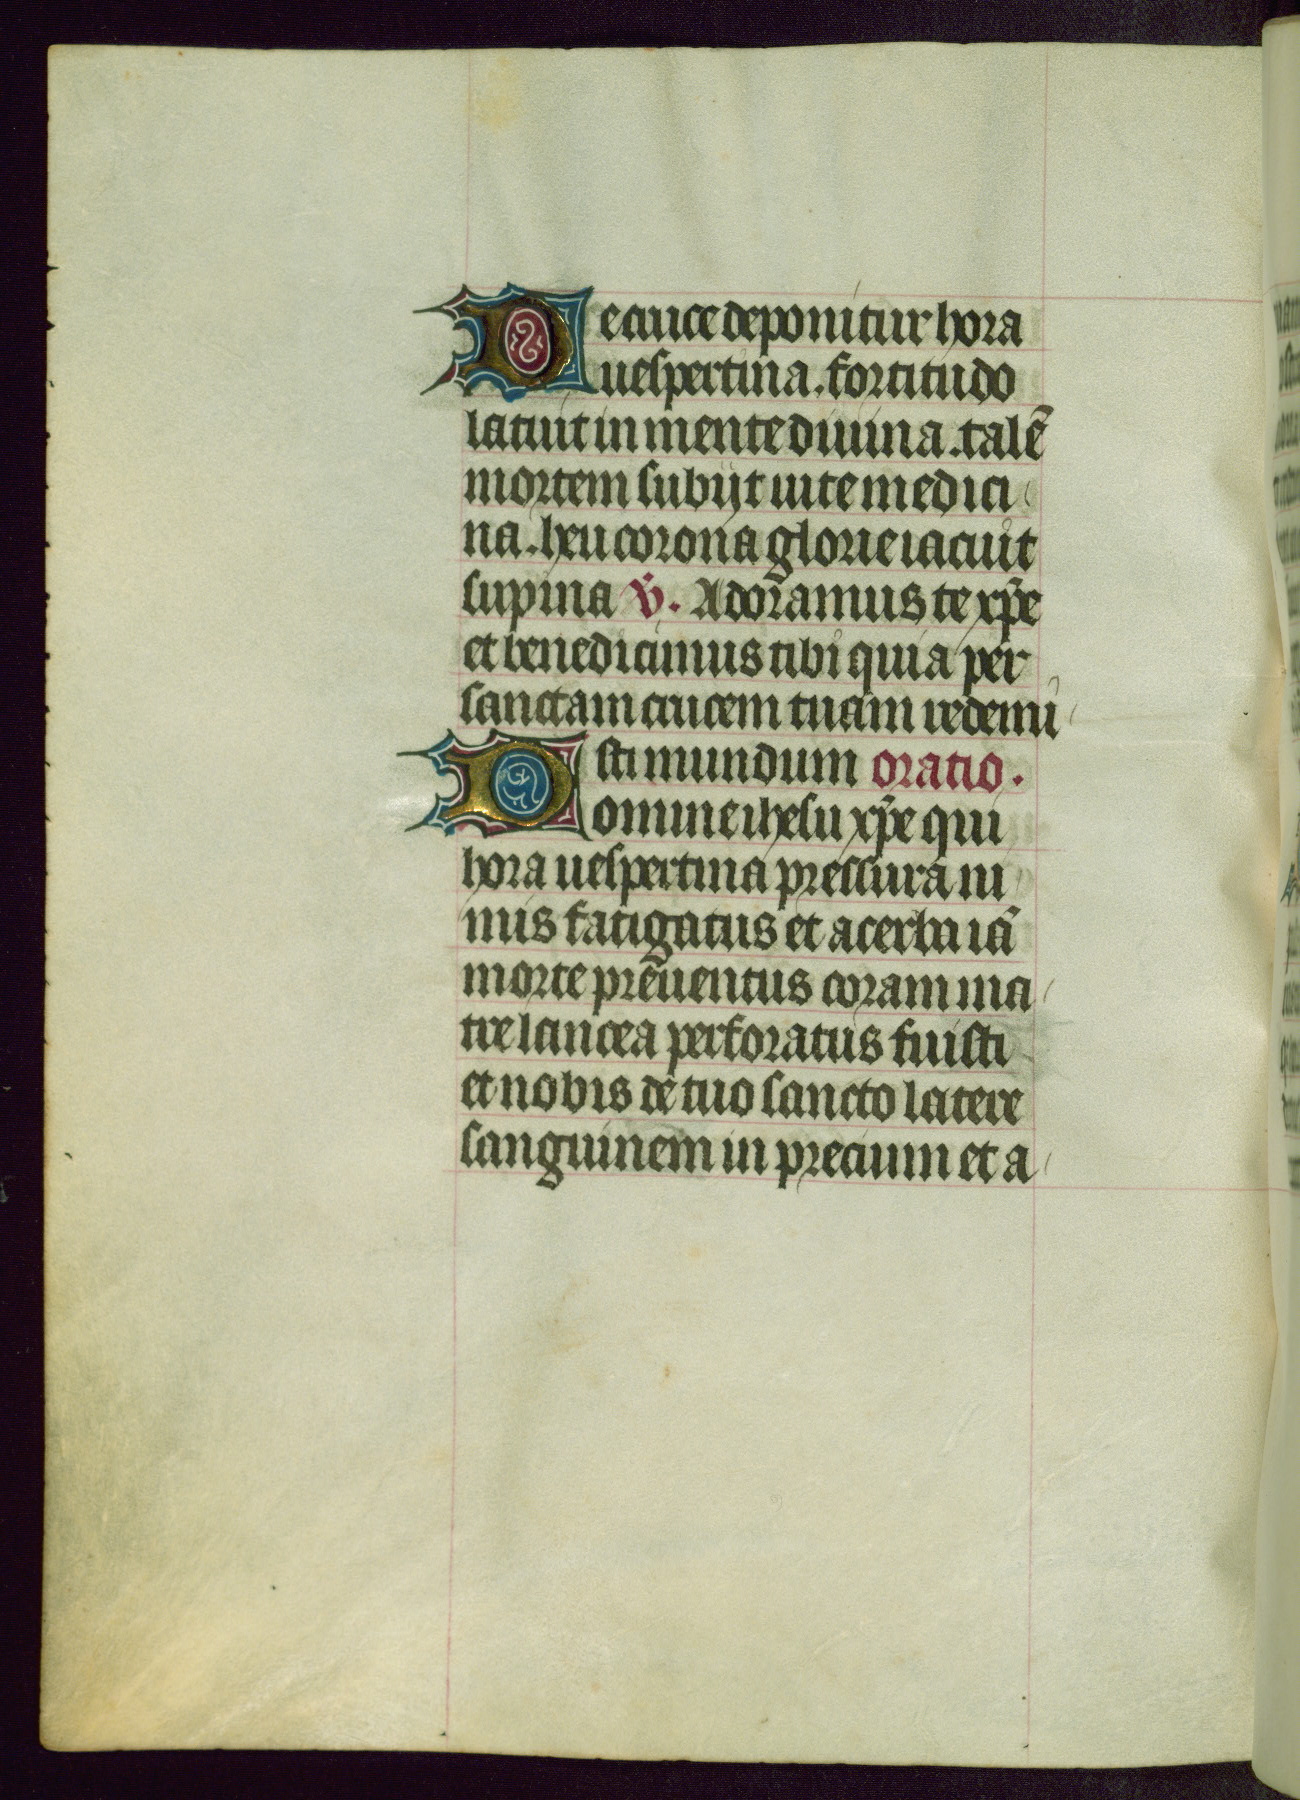 De cruce deponitur hora
uespertina . fortitudo
latuit in mente diuina . talē
mortem subijt uite medici
na . heu corona glorie iacuit
supina v̄ . Adoramus te xp̄e
et benedicimus tibi quia per
sanctam crucem tuam redemi
sti mundum oratio .
Domine ihesu xp̄e qui
hora uespertina pressura ni
mis fatigatus et acerba iā
morte prēuentus coram ma
tre lancea perforatus fuisti
et nobis de tuo sancto latere
sanguinem in precium et a